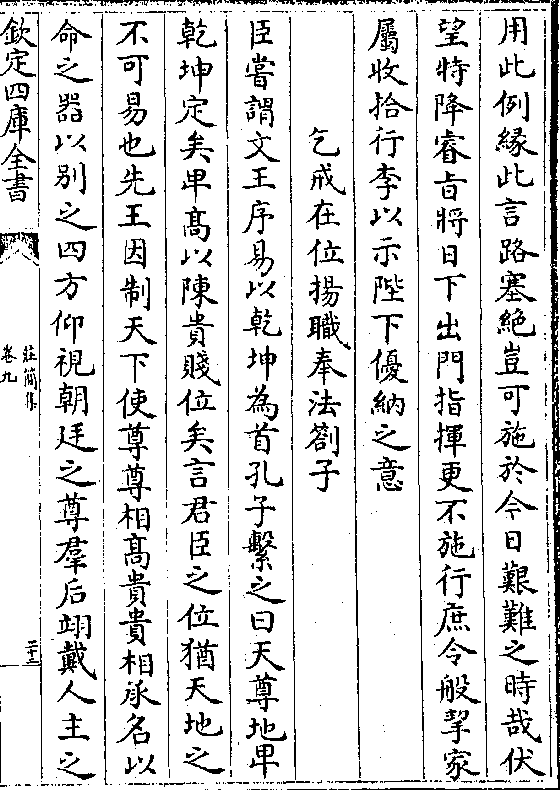 用此例緣此言路塞絶豈可施於今日艱難之時哉伏
望特降睿㫖將日下出門指揮更不施行庶令般挈家
屬收拾行李以示陛下優納之意
乞戒在位揚職奉法劄子
臣嘗謂文王序易以乾坤為首孔子繫之曰天尊地卑
乾坤定矣卑髙以陳貴賤位矣言君臣之位猶天地之
不可易也先王因制天下使尊尊相髙貴貴相承名以
命之器以别之四方仰視朝廷之尊羣后翊戴人主之
欽定四庫全書
莊簡集
卷九
二十三